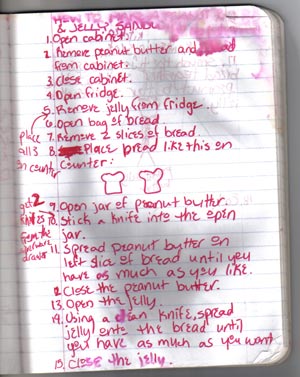 HOW TO
& JELLY SANDW
1. Open cabinet.
2. Remove peanut butter and bread
from cabinet.
3. Close cabinet.
4. Open fridge.
5. Remove jelly from fridge.
6. Open bag of bread.
7. Remove 2 slices of bread.
8. Place bread like this on
counter:
place
all 3
on counter
9. Open jar of peanut butter.
10. Stick a knife into the open
jar.
11. Spread peanut butter on
left slice of bread until you
have as much as you like.
get 2
knives
from the
silverware
drawer
12. Close the peanut butter.
13. Open the jelly.
14. Using a clean knife, spread
jelly onto the bread until
you have as much as you want
15. Close the jelly.